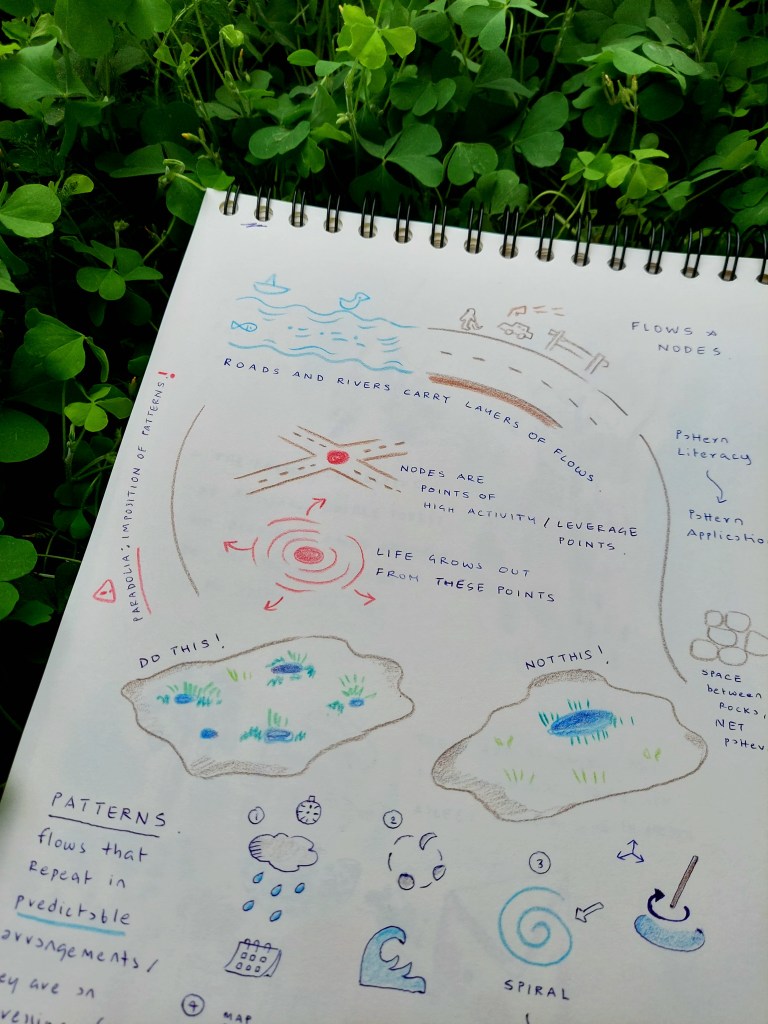 FLOWS &
NODES
ROADS AND RIVERS CARRY LAYERS OF FLOWS.
PARADOLIA: IMPOSITION OF PATTERNS!
Pattern
Literacy
Pattern
NODES ARE
POINTS OF
HIGH ACTIVITY / LEVERAGE
POINTS.
LIFE GROWS OUT
FROM THESE POINTS
DO THIS!
NOT THIS!
SPACE
between
ROCKS,
NET
PATTERNS.
flows that
Repeat in
predictable
arrangements/
are an
1
2
3
SPIRAL
4 MAP